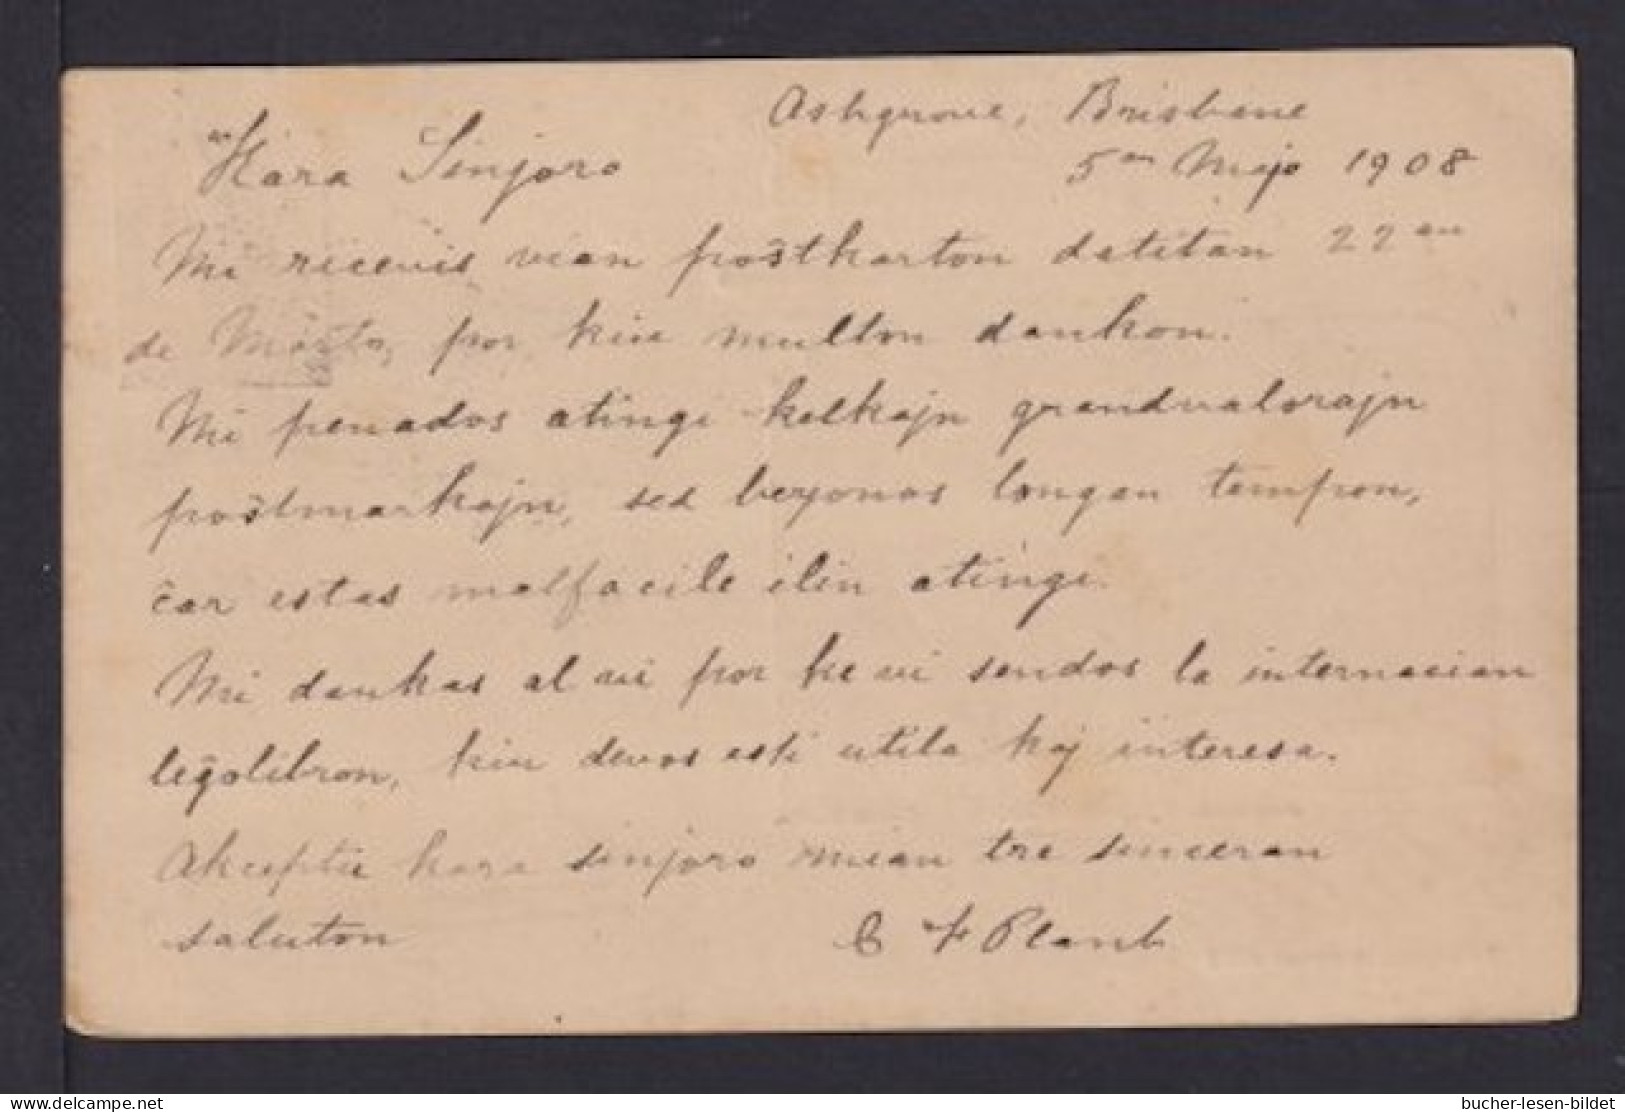 Ashgrove, Brisbane
Kara Sinjoro 5an Majo 1908
Mi ricevis vian poŝtkarton datitan 22an
de Marto, por kiu multon dankon.
Mi penados atingi kelkajn grandvalorajn
poŝtmarkojn, sed bezonos longan tempon,
ĉar estas malfacile ilin atingi.
Mi dankas al vi por ke vi sendos la internacian
leĝolibron, kiu devos esti utila kaj interesa.
Akceptu kara sinjoro mian tre sinceran
saluton C F Plant
www.delcampe.net
bucher-lesen-bildet